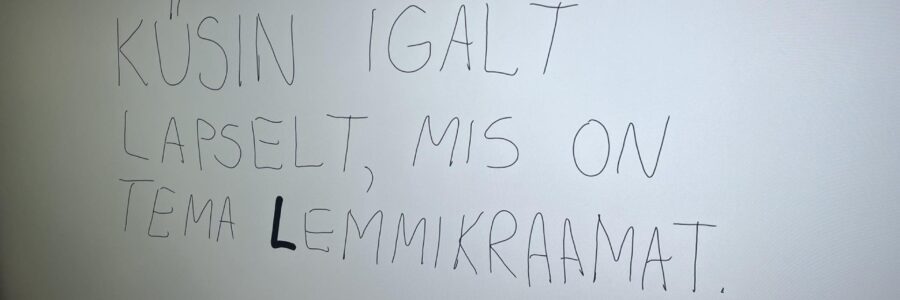 KÜSIN IGALT
LAPSELT, MIS ON
TEMA LEMMIKRAAMAT.